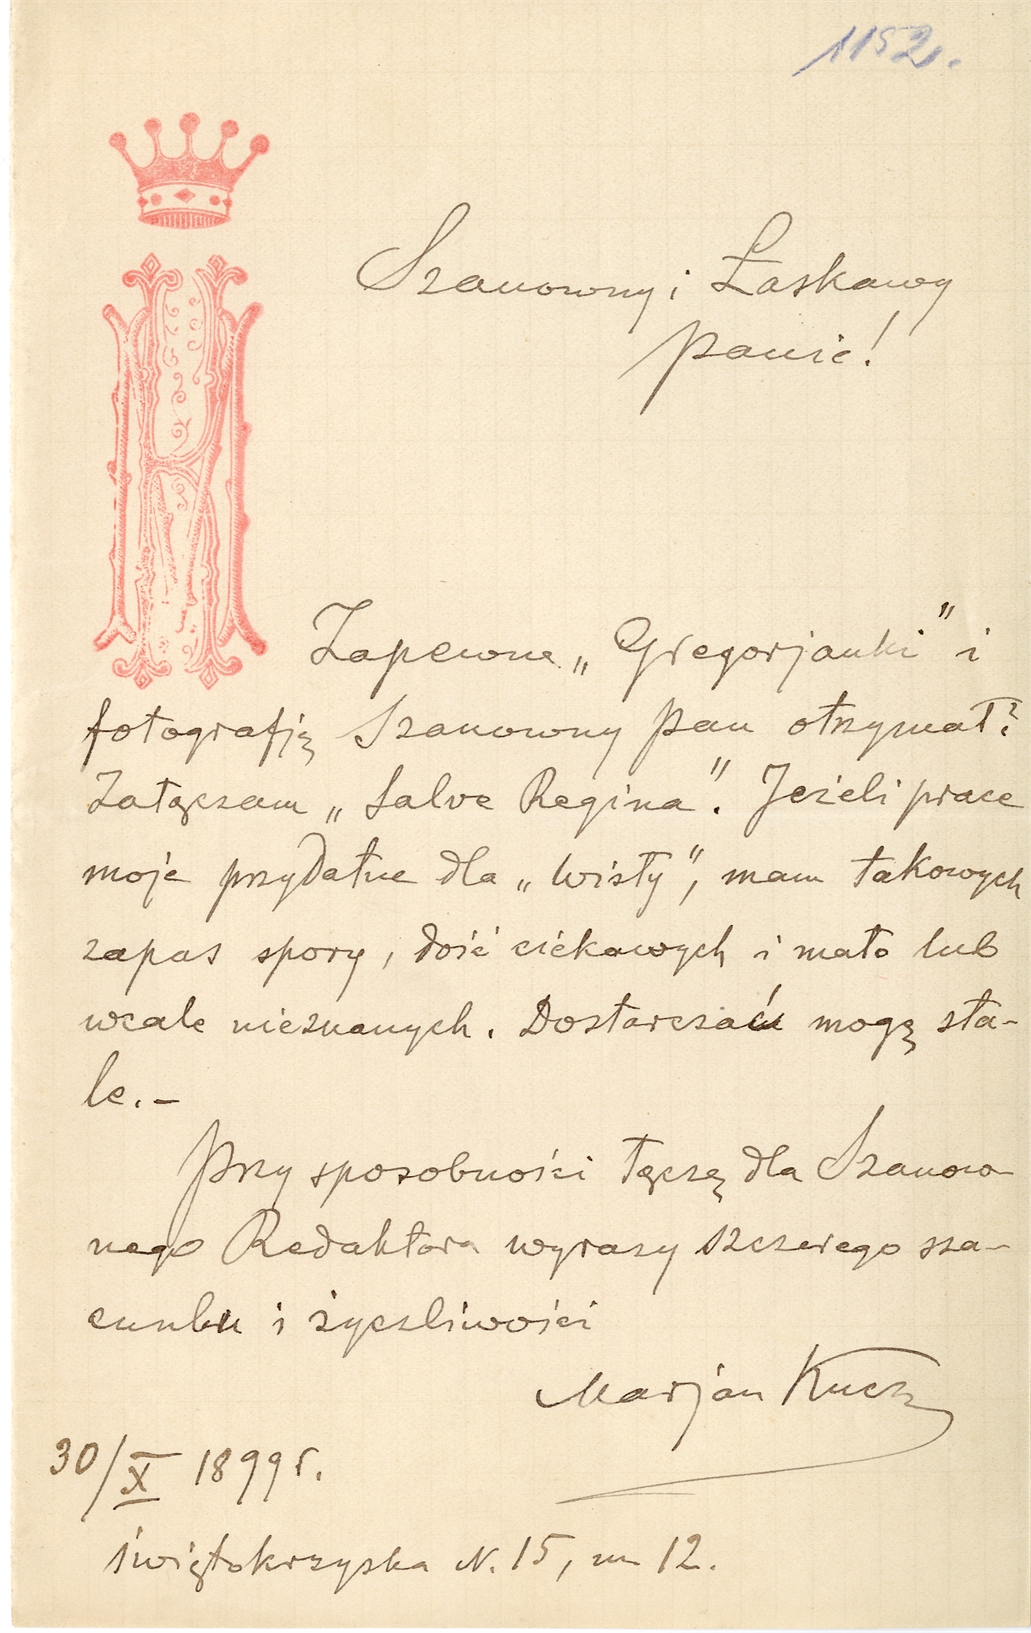 1152.
Szanowny i Łaskawy
Panie!
Zapewne „Gregorjanki” i
fotografję Szanowny Pan otrzymał?
Załączam „Salve Regina”. Jeżeli prace
moje przydatne dla „Wisły”, mam takowych
zapas spory, dość ciekawych i mało lub
wcale nieznanych. Dostarczać mogę sta-
le.-
Przy sposobności łączę dla Szanow-
nego Redaktora wyrazy szczerego sza-
cunku i życzliwości
Marjan Kucz
30/X 1899 r.
Świętokrzyska N. 15, m 12.